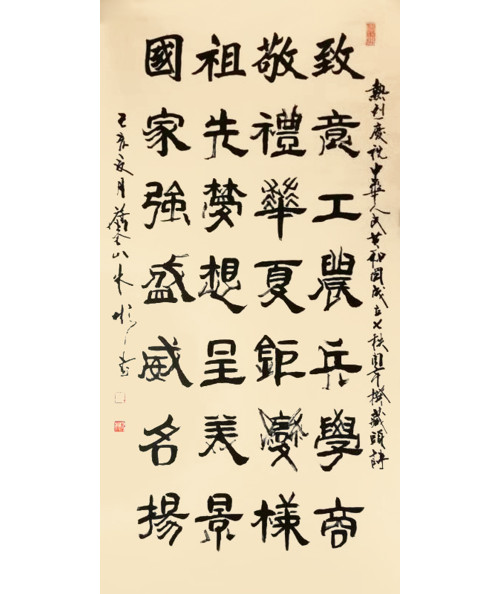 熱烈慶祝中華人民共和國成立七秩周年撰藏頭詩
致意工農兵學商
敬禮華夏鉅變樣
祖先夢想呈美景
國家強盛威名揚
己亥夏月